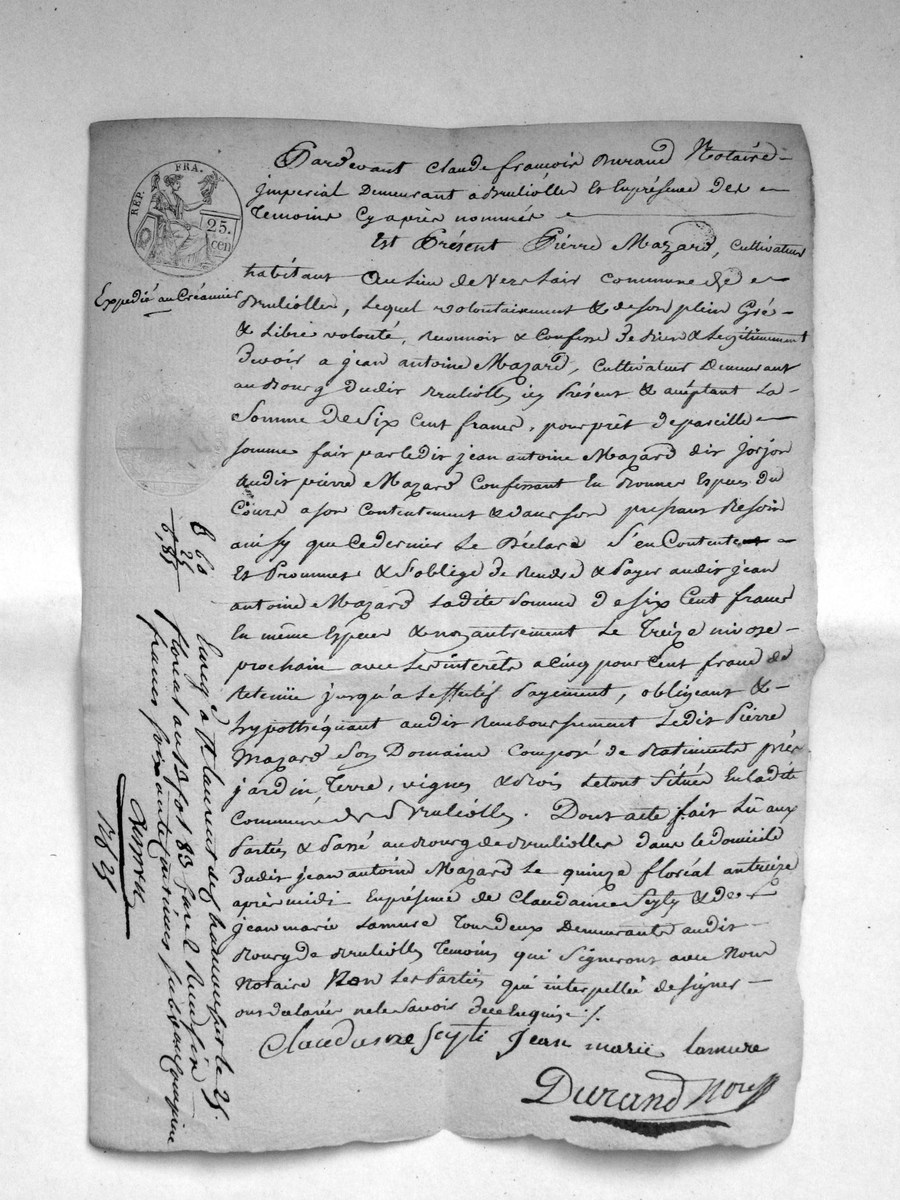 REP. FRA.
25.
cen
Expedié au Créancier
Pardevant Claude françois Durand Notaire
imperial Demeurant a Brulïolles Et En présence des
Temoins Cy après nommés
Est Présent Pierre Mazard, cultivateur
habitant Au lieu de Versair commune de
Brulïolles, Lequel volontairement & de son plein Gré
& Libre volonté, reconnoit & Confesse De bien & Legitimement
Devoir a jean antoine Mazard, cultivateur Demeurant
au Bourg Dudit Brulïolles icy Présent & acceptant La
Somme De Six Cent francs, pour prêt de pareille
somme fait par ledit jean antoine Mazard dit jorjon
audit pierre Mazard Confessant En Bonnes Espèces du
Cours a son Contentement & dans son pressant Besoin
ainsy que ce dernier Le Déclare S'en Contente
Et Prommet & S'oblige De Rendre & Payer audit jean
antoine Mazard Ladite Somme De Six Cent francs
En même Espèces & non autrement Le Treize nivose
prochain avec Les intérêts a Cinq pour Cent franc de
retenüe jusqu'a L'effectif Payement, obligeant &
hypothéquant audit Remboursement Ledit Pierre
Mazard Son Domaine Composé de Batiments prés
jardin, Terre, vignes & bois Le tout Situé En ladite
Commune de Brulïolles. Dont acte fait Lû aux
Parties & Passé au Bourg de Brulïolles dans le domicile
Dudit jean antoine Mazard Le quinze floréal an treize
après midi En présence de Claudaime Seyty & de
jean marie Lamure Tous deux Demeurants audit
Bourg de Brulïolles Temoins qui Signeront avec Nous
Notaire Non Les Parties qui interpellée de signer
ont declarés ne le Savoir De ce Enquise /.
Jean marie Lamure
Durand Nore
6 60
25
6,85
Enreg à St Laurent de chamousset le 25
floreal an 13 fol 83 Reçu
francs soixante centimes